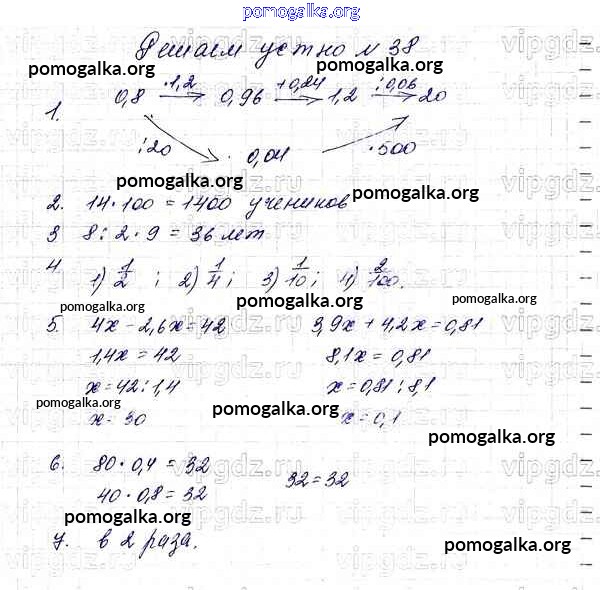 pomogalka.org
Решаем устно № 38
pomogalka.org pomogalka.org
1. 0,8 ·1,2 0,96 +0,24 1,2 :0,06 20
:20 0,04 ·500
pomogalka.org pomogalka.org
2. 14·100 = 1400 учеников
3 8 : 2 · 9 = 36 лет
4 1) 1/2 ; 2) 1/4 ; 3) 1/10 ; 4) 2/100.
pomogalka.org pomogalka.org pomogalka.org
5. 4x - 2,6x = 42 3,9x + 4,2x = 0,81
1,4x = 42 8,1x = 0,81
x = 42 : 1,4 x = 0,81 : 8,1
pomogalka.org pomogalka.org
x = 30 x = 0,1
pomogalka.org
6. 80 · 0,4 = 32
40 · 0,8 = 32 32 = 32
pomogalka.org
7. в 2 раза.
pomogalka.org
vipgdz.ru